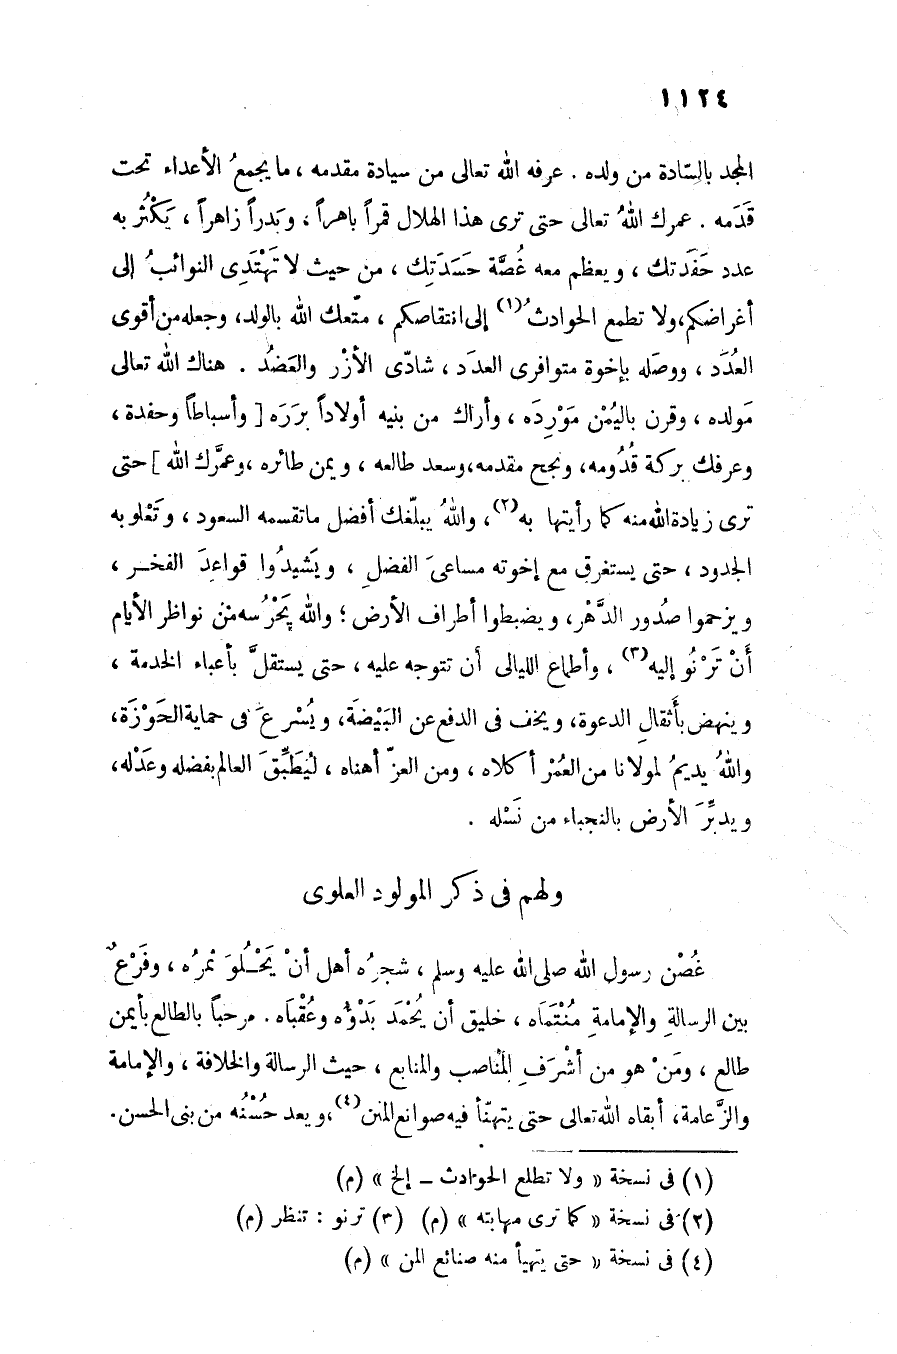 ١١٢٤
المجد بالسّادة من ولده . عرفه الله تعالى من سيادة مقدمه ، ما يجمعُ الأعداء تحت
قَدَمه . عمرك اللهُ تعالى حتى ترى هذا الهلال قمراً باهراً ، وبَدراً زاهراً ، يَكْثُر به
عدد حَفَدتك ، ويعظم معه غُصَّة حَسَدَتِك ، من حيث لا تَهْتَدِى النوائبُ إلى
أغراضكم، ولا تطمع الحوادثُ(١) إلى انتقاصكم ، متّعك الله بالولد، وجعله من أقوى
العُدَد ، ووصَله بإخوة متوافرى العدَد ، شادّى الأزْر والعَضُد . هناك الله تعالى
مَولده ، وقرن باليُمْن مَوْرِدَه ، وأراك من بنيه أولاداً بَرَرَه [ وأسباطاً وحفدة ،
وعرفك بركة قدُومه، ونجح مقدمه، وسعد طالعه ، ويمن طائره ، وعمَّرك الله ] حتى
ترى زيادة الله منه كما رأيتها به(٢)، واللهُ يبلّغك أفضل ما تقسمه السعود ، وتَعْلو به
الجدود ، حتى يستغرق مع إخوته مساعىَ الفضلِ ، ويَشيدُوا قواعِدَ الفخـر ،
ويزحموا صدُور الدَّهْر، ويضبطوا أطراف الأرض ؛ والله يَحْرُسه مِنْ نواظر الأيام
أَنْ تَرْنُو إليه(٣) ، وأطماع الليالى أن تتوجه عليه ، حتى يستقلَّ بأعباء الخدمة ،
وينهض بأَثقالِ الدعوة، ويخف فى الدفع عن البَيْضَة، ويُسْرعَ فى حماية الحَوْزَة،
واللهُ يديمُ لمولانا من العُمْر أكلاه ، ومن العزّ أهناه ، ليُطَبِّقَ العالم بفضله وعدْله،
ويدبِّرَ الأرض بالنجباء من نَسْله .
ولهم فى ذكر المولود العلوى
غُصْن رسول الله صلى الله عليه وسلم ، شجرُه أهل أنْ يَحْـلُوَ ثمرُه ، وفَرْعٌ
بين الرسالةِ والإمامةِ مُنْتَمَاه ، خليق أن يُحْمَدَ بَدْؤه وعُقْبَاه . مرحباً بالطالع بأيمن
طالع ، ومَنْ هو من أشْرَفِ المناصب والمنابع ، حيث الرسالة والخلافة ، والإمامة
والزَّعامة، أبقاه الله تعالى حتى يتهنّأ فيه صوانع المنن(٤)، ويعد حُسْنُه من بنى الحسن.
(١) فى نسخة « ولا تطلع الحوادث – إلخ » (م)
(٢) فى نسخة « كما ترى مهابته » (م)   (٣) ترنو : تنظر (م)
(٤) فى نسخة « حتى يتهيأ منه صنائع المن » (م)